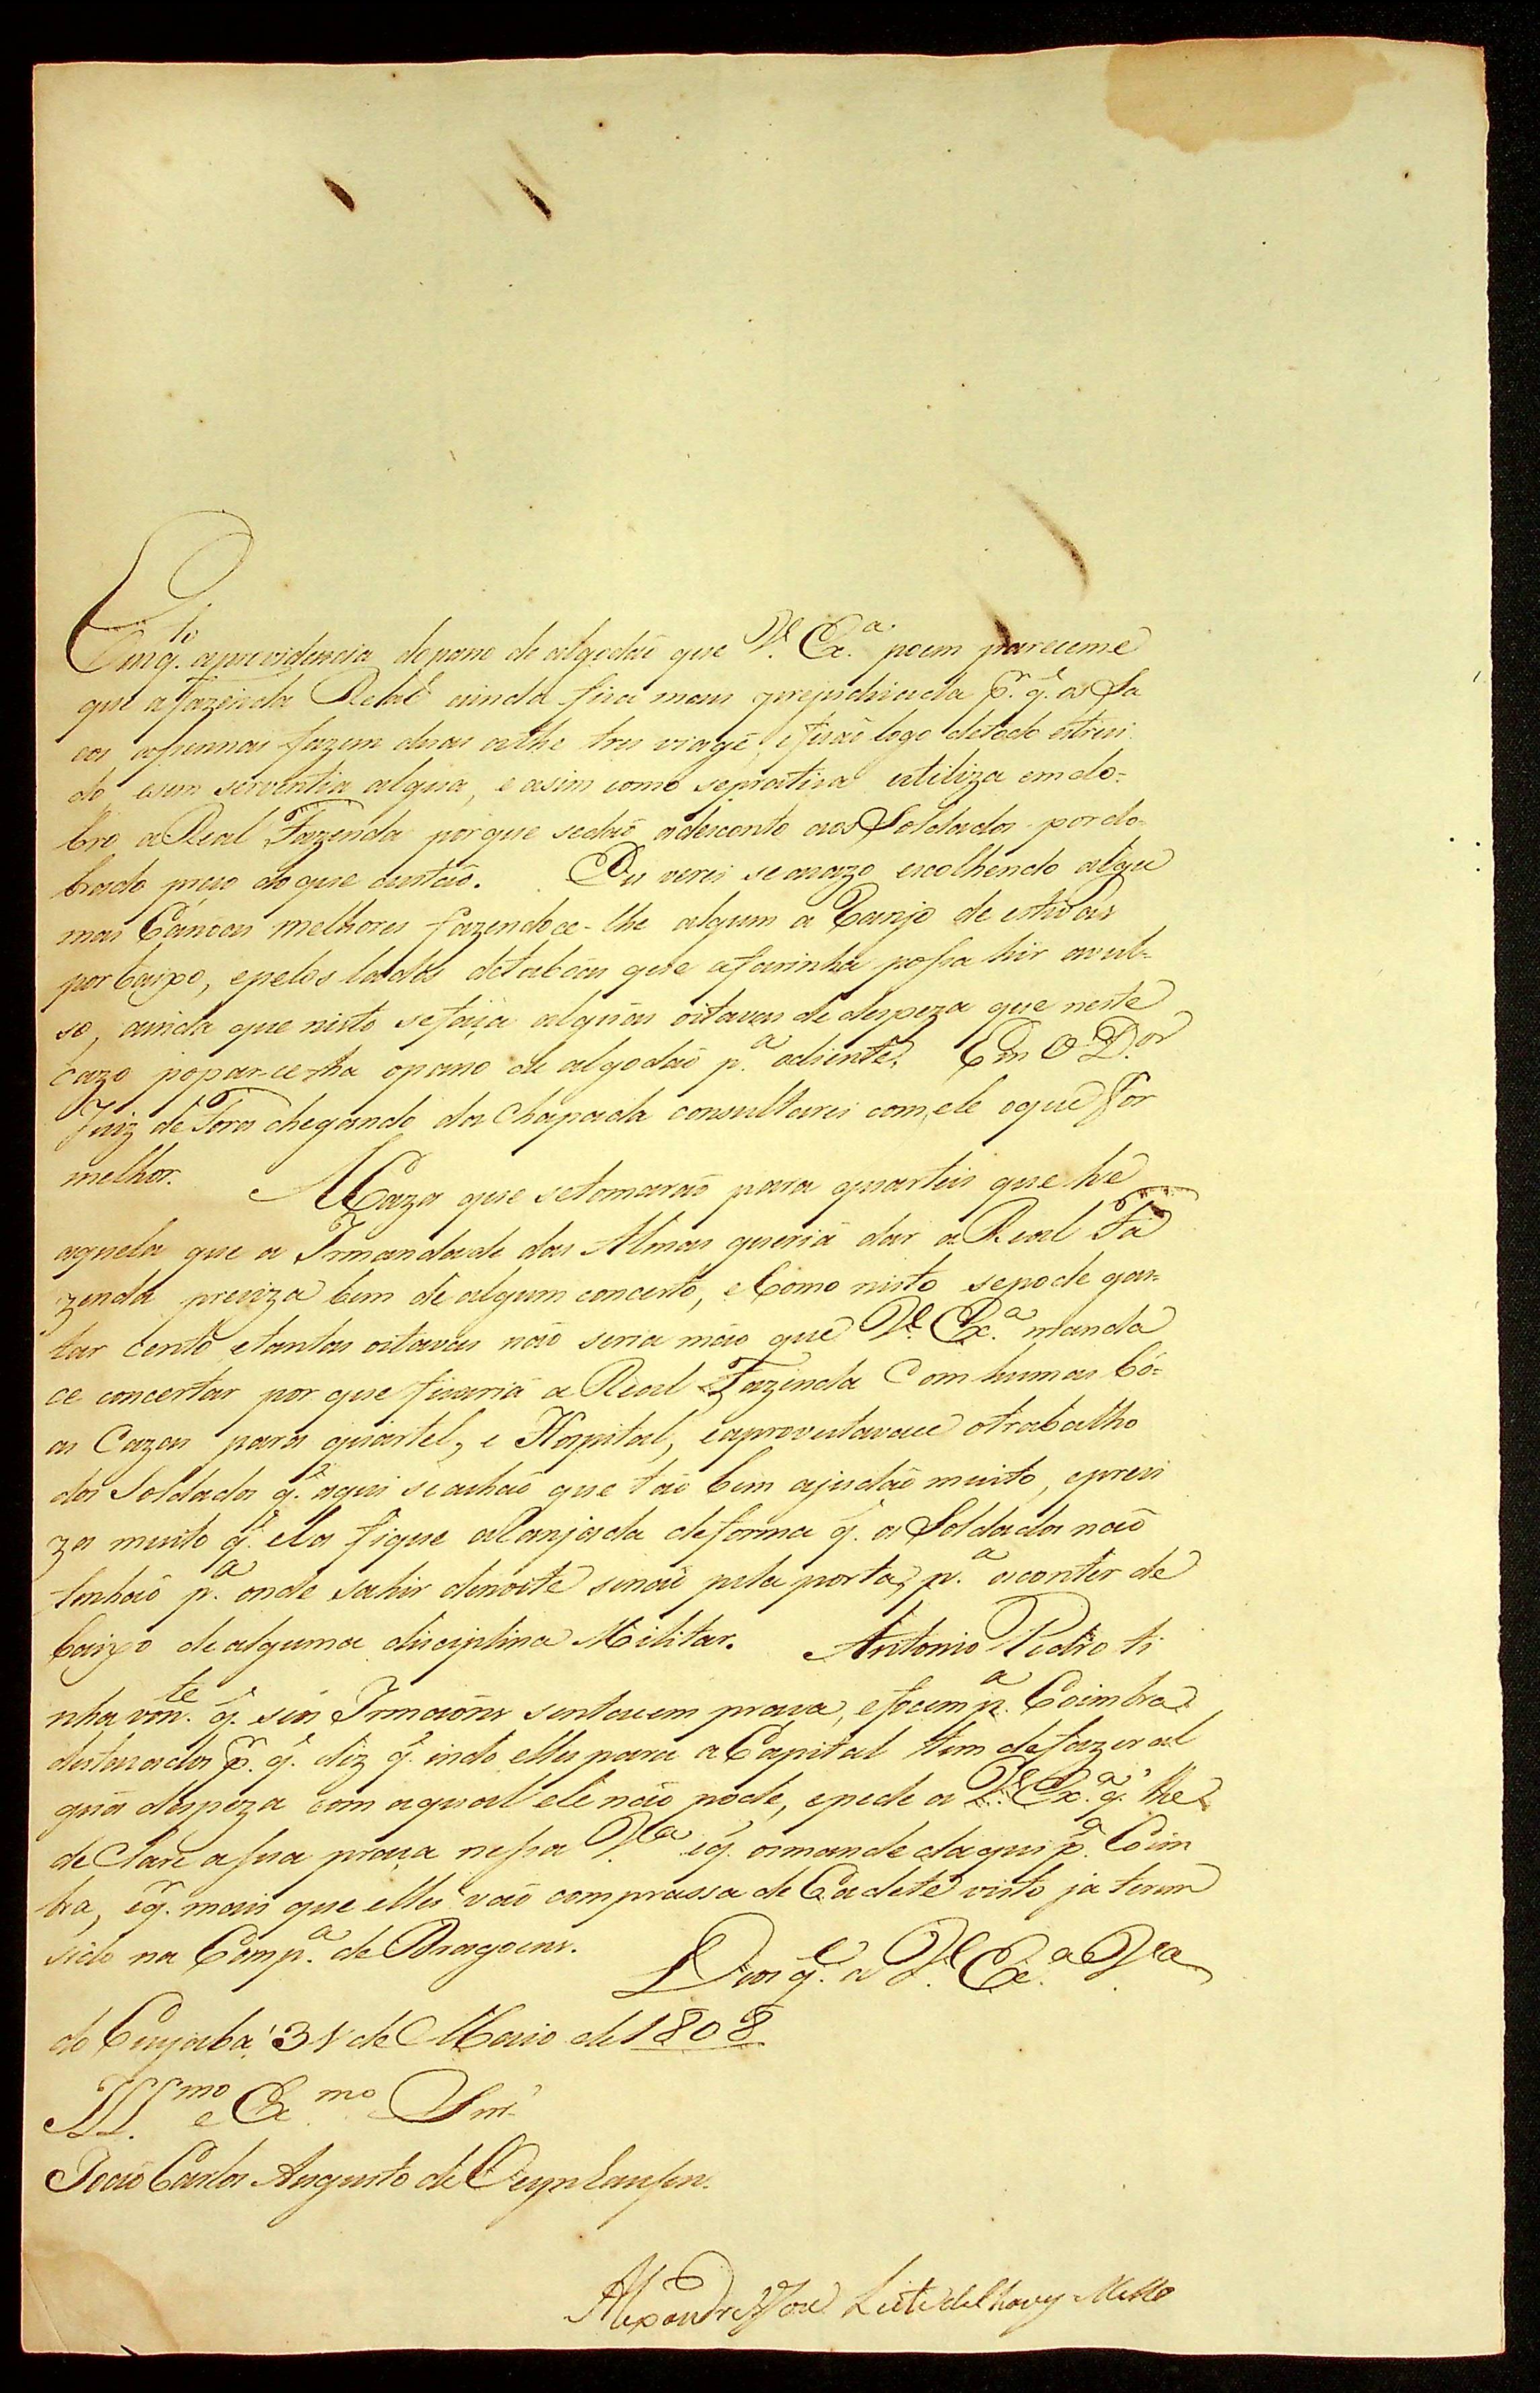 Emq.to aprovidencia dopano de algodaõ que V.ª Ex.ª poem pareceme
que a fazenda Real ainda fica mais prejudicada P.r q.e os Sa
cos, apennas fazem duas athe tres viagẽ, eficaõ logo detodo estrui
do, esem serventia algua, e asim como sepratica utiliza emdo=
bro a Real Fazenda porque sedaõ adesconto aos Soldados pordo
brado preço doque custaõ. Eu verei se arazo escolhendo algu
mas Canoas melhores fazendoce-lhe algum a Ranjo de estivas
porbaixo, epelos lados detaboas que afarinha possa hir avul=
so, ainda que nisto sefaça algũas oitavas de despeza que neste
cazo poparceha opano de algodaõ p.ª adiente. Em O D.or
Juiz de Fora chegando da Chapada consultarei com ele oque for
melhor. A Caza que setomaraõ para quarteis que he
aquela que a Irmandade das Almas queria dar a Real Fa
zenda preciza bem de algum concerto, eComo nisto sepode gas=
tar Cento etantas oitavas naõ seria mão que V.ª Ex.ª manda
ce concertar por que ficaria a Real Fazenda Com humas bô=
as Cazas para quartel, e Hospital, eaproveitavace otrabalho
dos Soldados q.e aqui seachaõ que taõ bem ajudaõ muito, epreci
za muito q.e ela fique aRanjada deforma q.e os Soldados naõ
tenhaõ p.ª onde sahir denoite senaõ pela porta, p.ª aconter de
baixo dealguma disciplina Militar. Antonio Pedro ti
nha von.te q.e seus Irmaõns sentacem praça, efocem p.ª Coimbra
destacados P.r q.e diz q.e indo elles para a Capital tem defazer al
gũa despeza com aqual ele naõ pode, epede a V.ª Ex.ª q.e lhe
deClare asua praça nessa V.ª eq.e osmande daqui p.ª Coim
bra, eq.e mais que elles vaõ com prassa de Cadete visto ja terem
sido na Comp.ª de Dragoens. Deos g.e a V.ª Ex.ª V.ª
do Cuyabá 31 de Maio de 1808
Ill.mo e Ex.mo Snr.
Joaõ Carlos Augusto de Oeynhausen.
Alexandre Joze Leite de Chaves Mello